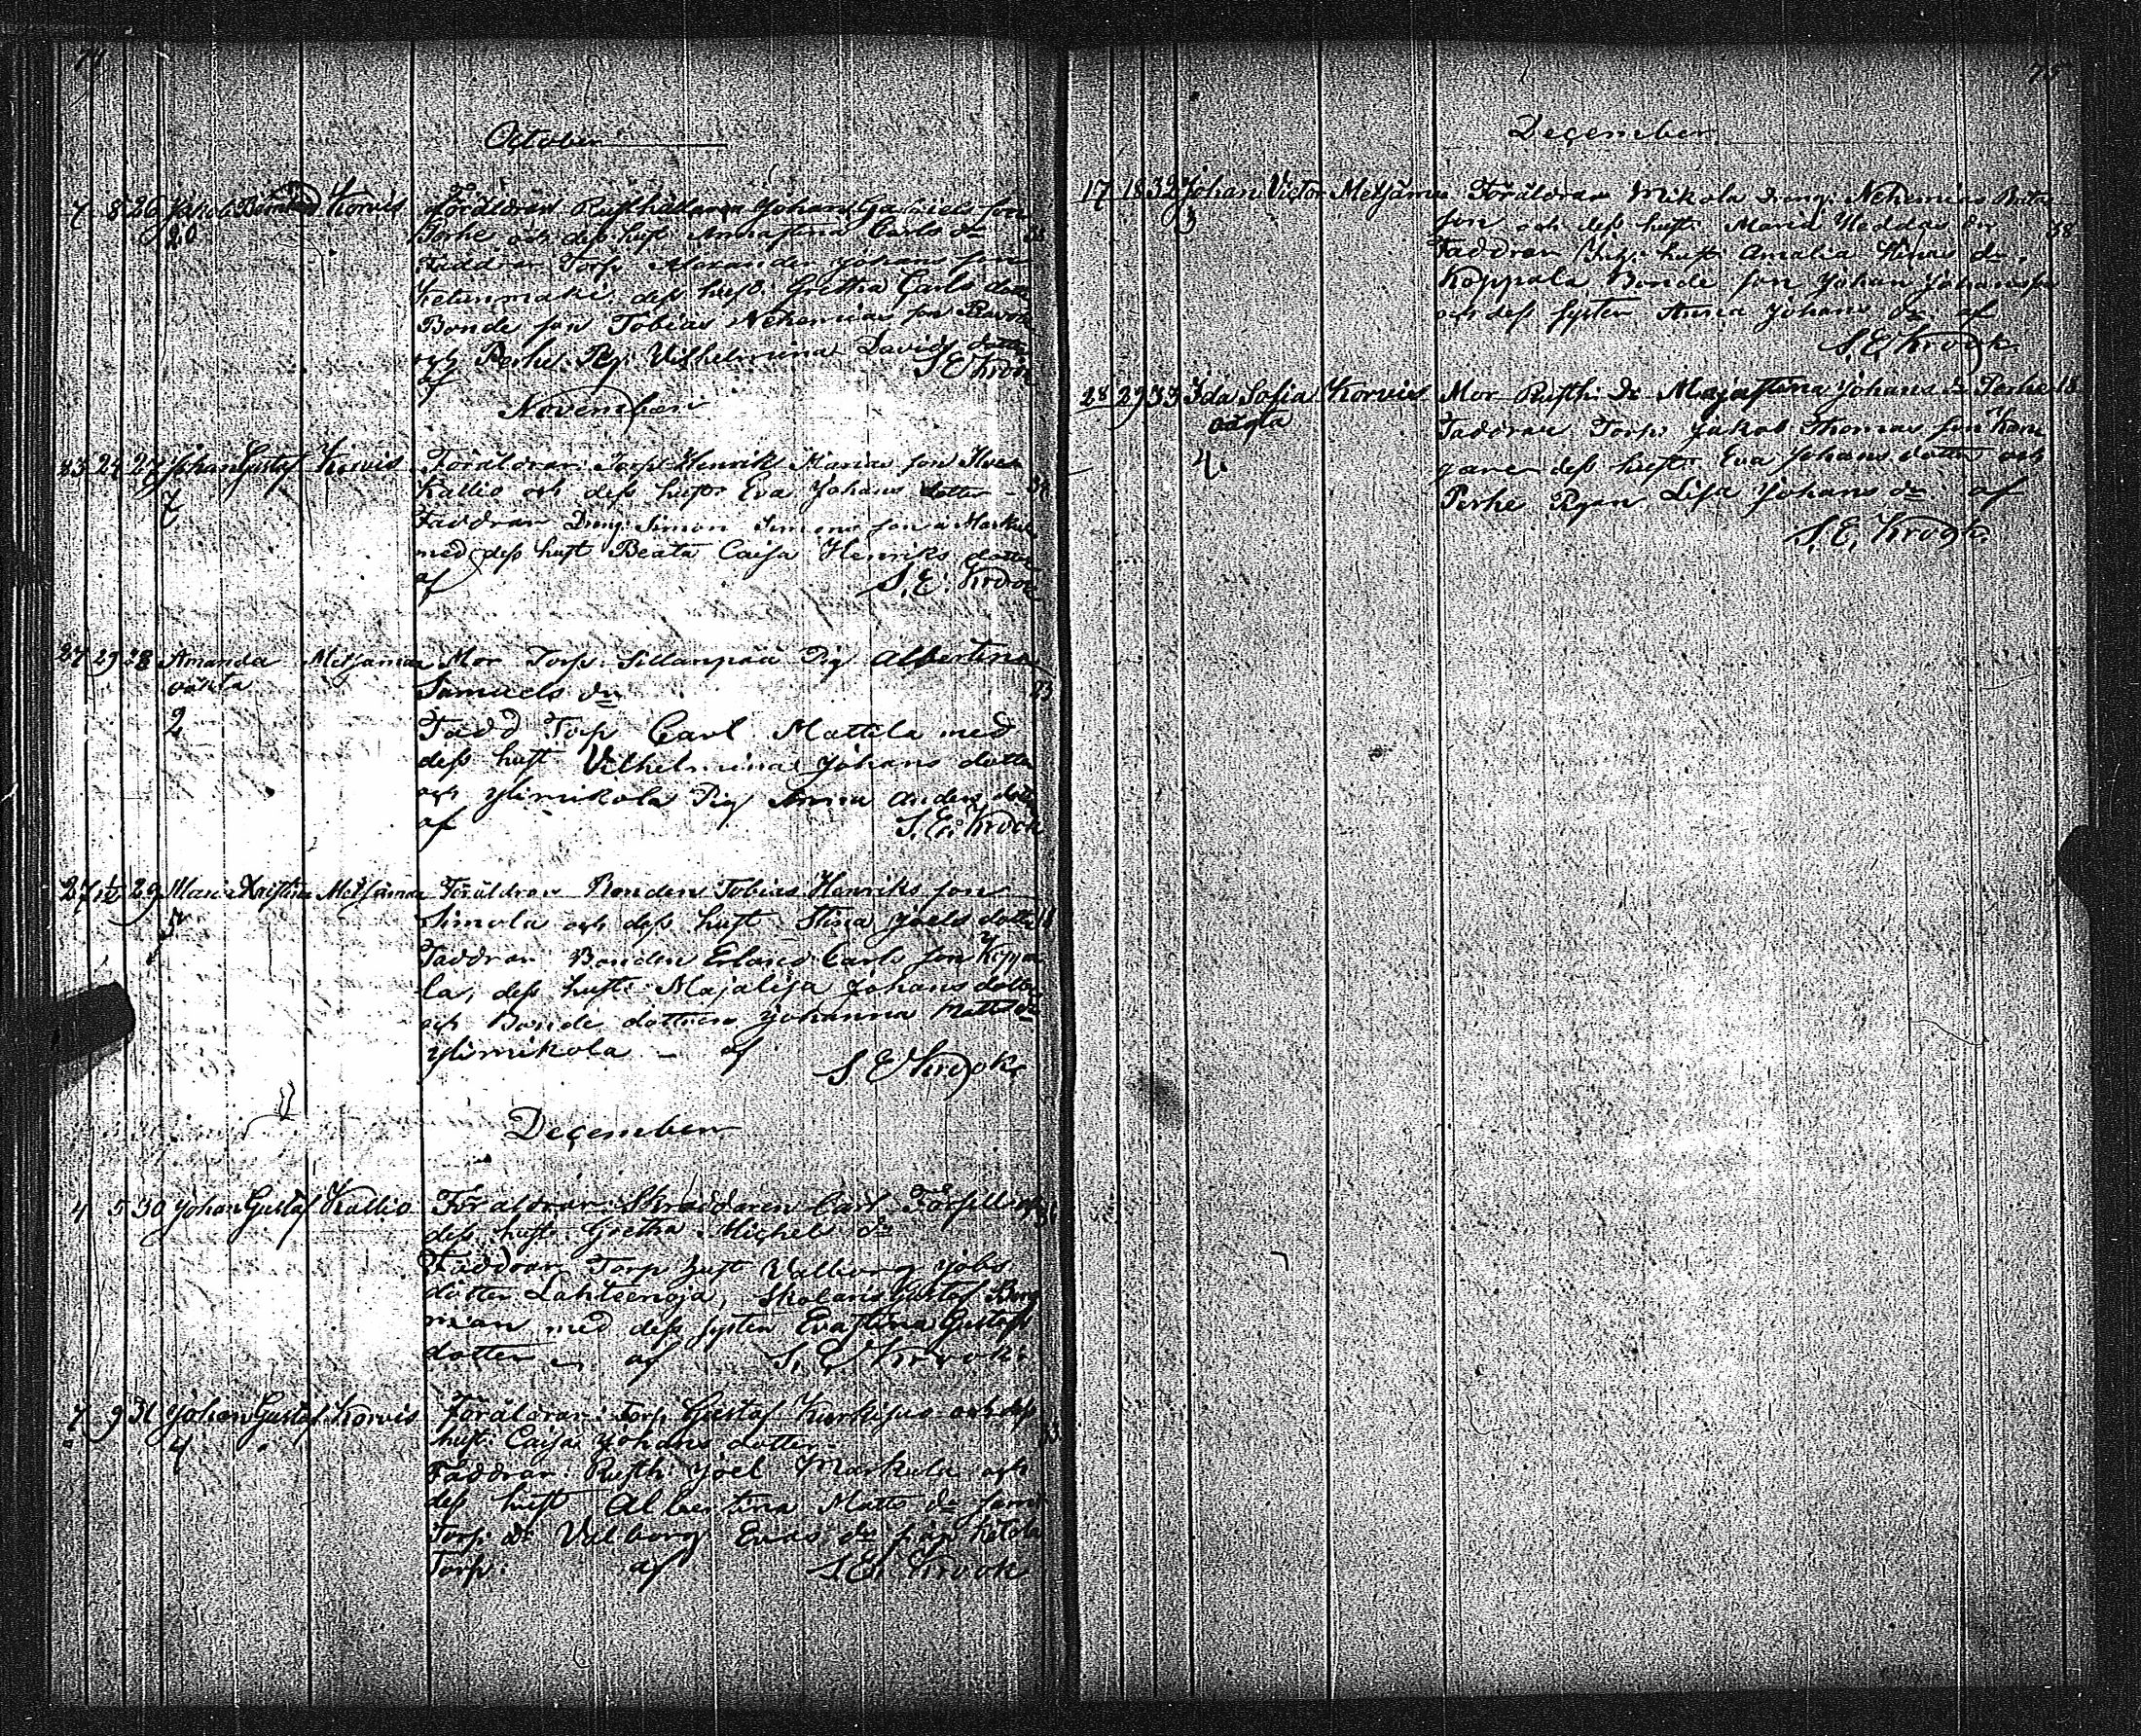 74
October
7 8 26 Jakob Korvis Föräldrar Rusthållaren Johan Gabriels son
20 Perhe och dess hust. Annastina Carls dr
Faddrar Torp. Alexander Johans son
Ketunmäki dess hust. Gretha Carls dotter
Bonde son Tobias Nehemias son
och Perhe Pig. Vilhelmina Davids dotter
af S E Krook
November
23 24 27 Johan Gustaf Korvis Föräldrar: Torp. Henrik Marias son
Kallio och dess hustr. Eva Johans dotter
7 Faddrar Dreng. Simon Simons son
med dess hust Beata Caisa Henriks dotter
af S. E. Krook
27 29 28 Amanda Metsämaa Mor Torp. Sillanpää Pig Albertina
oäkta Samuels dr
2 Fadd Torp Carl Mattila med
dess hust Vilhelmina Johans dotter
och Ylimikola Pig Anna Anders dotter
af S. E. Krook
27 1/12 29 Maria Kristina Metsämaa Föräldrar Bonden Tobias Henriks son
5 Simola och dess hust Stina Joels dotter
Faddrar Bonden Erland Carls son Koppa-
la, dess hust. Majalisa Johans dotter
och Bonde dottren Johanna Matts dr
Ylimikola - af
S E Krook
December
4 5 30 Johan Gustaf Kallio Föräldrar: Skräddaren Carl
dess hust. Gretha Michels dr
Faddrar Torp hust Valborg Jobs
dotter Lahteenoja, Gustaf Berg
man med dess syster Evastina Gustafs
dotter af S. E. Krook
7 9 31 Johan Gustaf Korvis Föräldrar: Torp. Gustaf och dess
4 hust. Caisa Johans dotter
Faddrar: Rusth. Joel Markula och
dess hust Albertina Matts dr samt
Torp. dr Valborg Evas dr från Ketola
Torp. af S. E. Krook
75
December
17 18 32 Johan Victor Metsämaa Föräldrar Mikola Dreng. Nehemias Beatas
3 son och dess hust. Maria Heddas dr 58
Faddrar hust. Amalia Stinas dr.
Koppala Bonde son Johan Johansson
och dess syster Anna Johans dr af
S. E. Krook
28 29 33 Ida Sofia Korvis Mor Rusth. dr Majastina Johans dr Perhe 18
oägta Faddrar Torp. Jakob Thomas son
4 dess hust. Eva Johans dotter och
Perhe Pigan Lisa Johans dr af
S. E. Krook